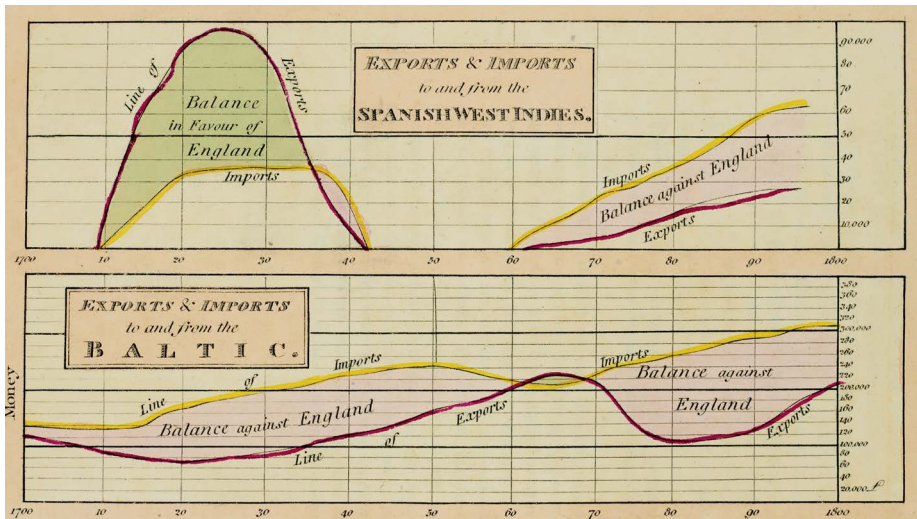 EXPORTS & IMPORTS
to and from the
SPANISH WEST INDIES.
Line of
Exports
Balance
in Favour of
England
Imports
Imports
Balance against England
Exports
90.000
80
70
60
50
40
30
20
10.000
1700 10 20 30 40 50 60 70 80 90 1800
EXPORTS & IMPORTS
to and from the
BALTIC.
Money
Line of Imports
Balance against England
Line of Exports
Imports
Balance against
England
Exports
380
360
340
320
300.000
280
260
240
220
200.000
180
160
140
120
100.000
80
60
40
20.000
1700 10 20 30 40 50 60 70 80 90 1800